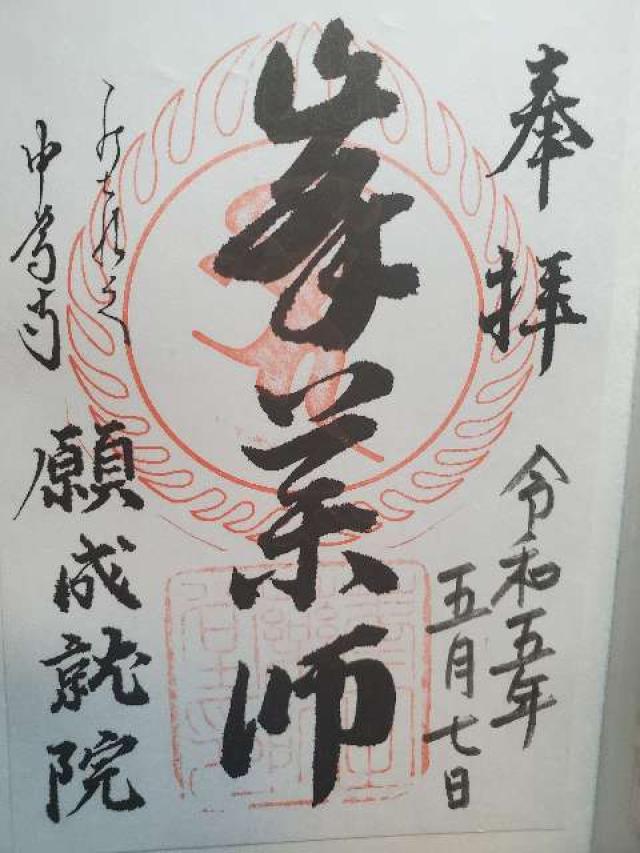 奉拝
令和五年
五月七日
峯薬師
みちのく
中尊寺
願成就院